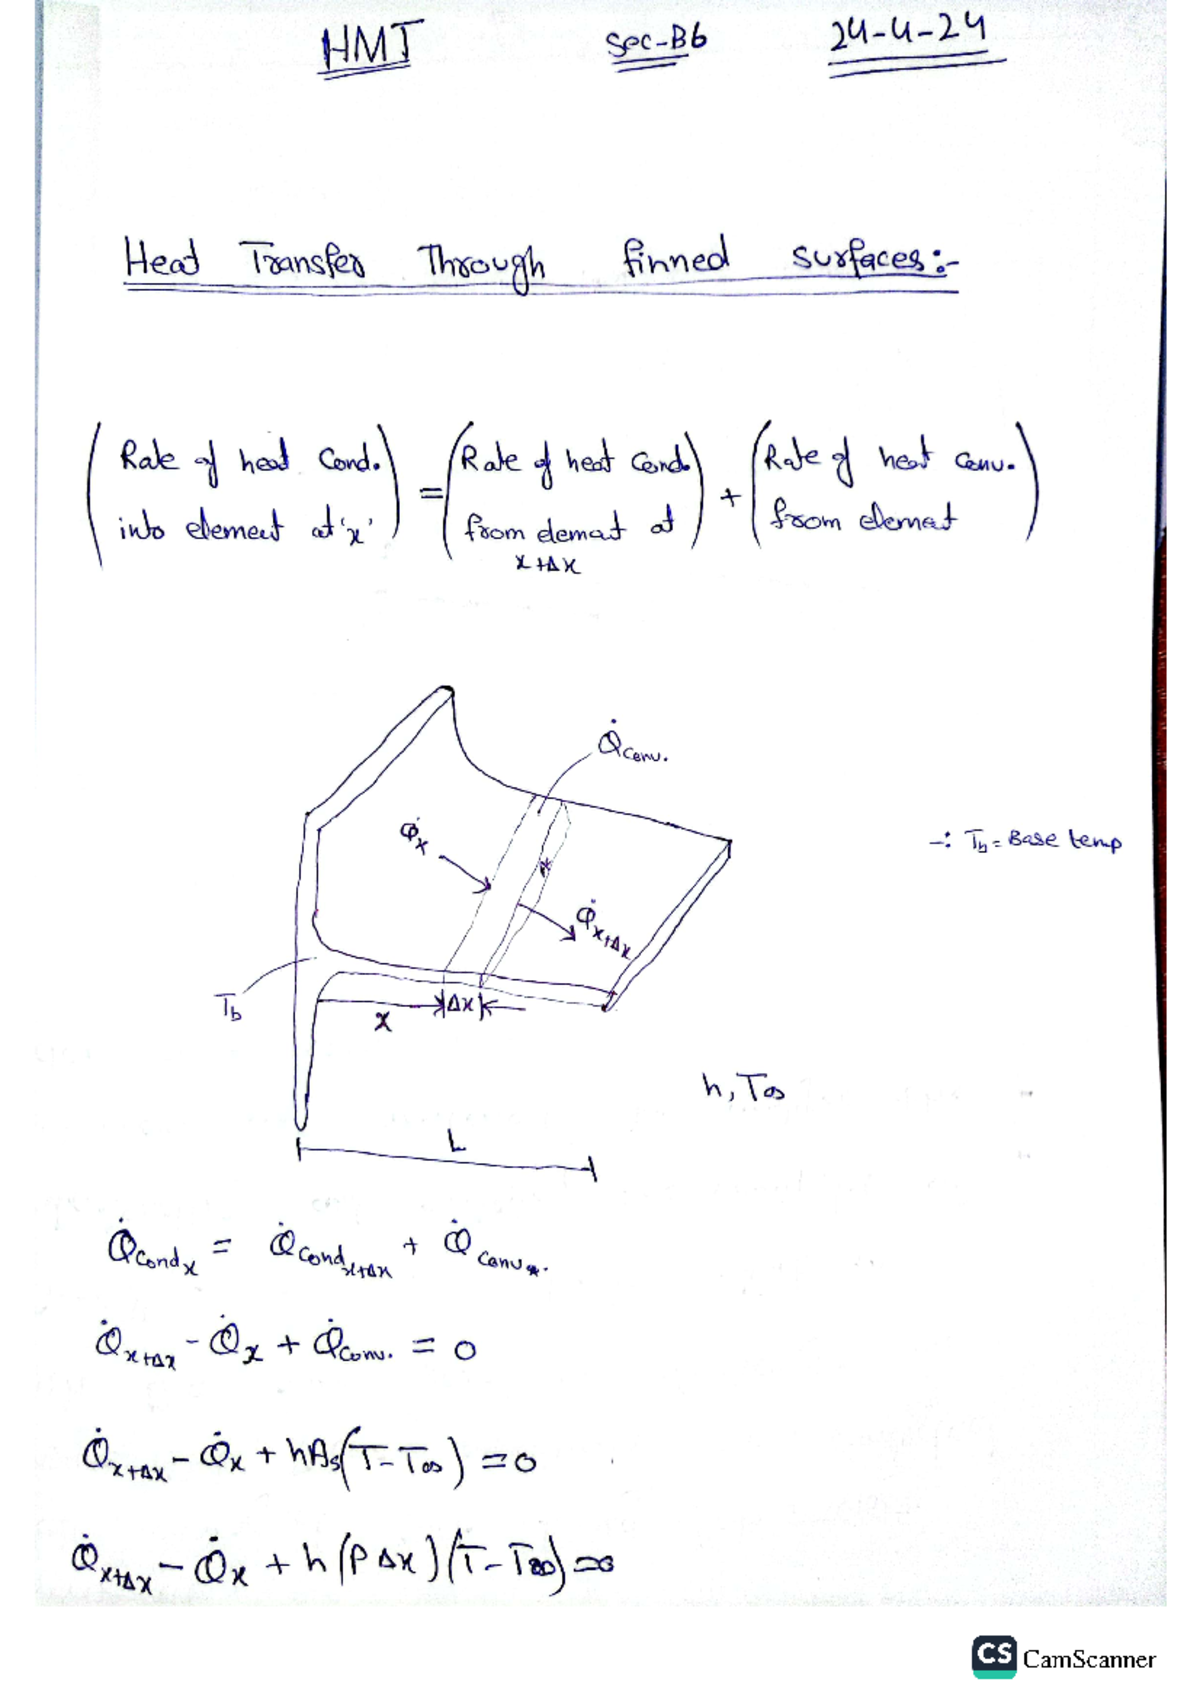 HMT Sec-B6 24-4-24
Heat Transfer Through finned surfaces:-
(Rate of heat Cond. into element at 'x') = (Rate of heat Cond. from element at x+Δx) + (Rate of heat Conv. from element)
Q̇conv.
Q̇x
-: Tb = Base temp
Q̇x+Δx
Tb
x
Δx
h, T∞
L
Q̇Condx = Q̇Condx+Δx + Q̇Conv.
Q̇x+Δx - Q̇x + Q̇Conv. = 0
Q̇x+Δx - Q̇x + hAs(T-T∞) = 0
Q̇x+Δx - Q̇x + h(PΔx)(T-T∞) = 0
CS CamScanner